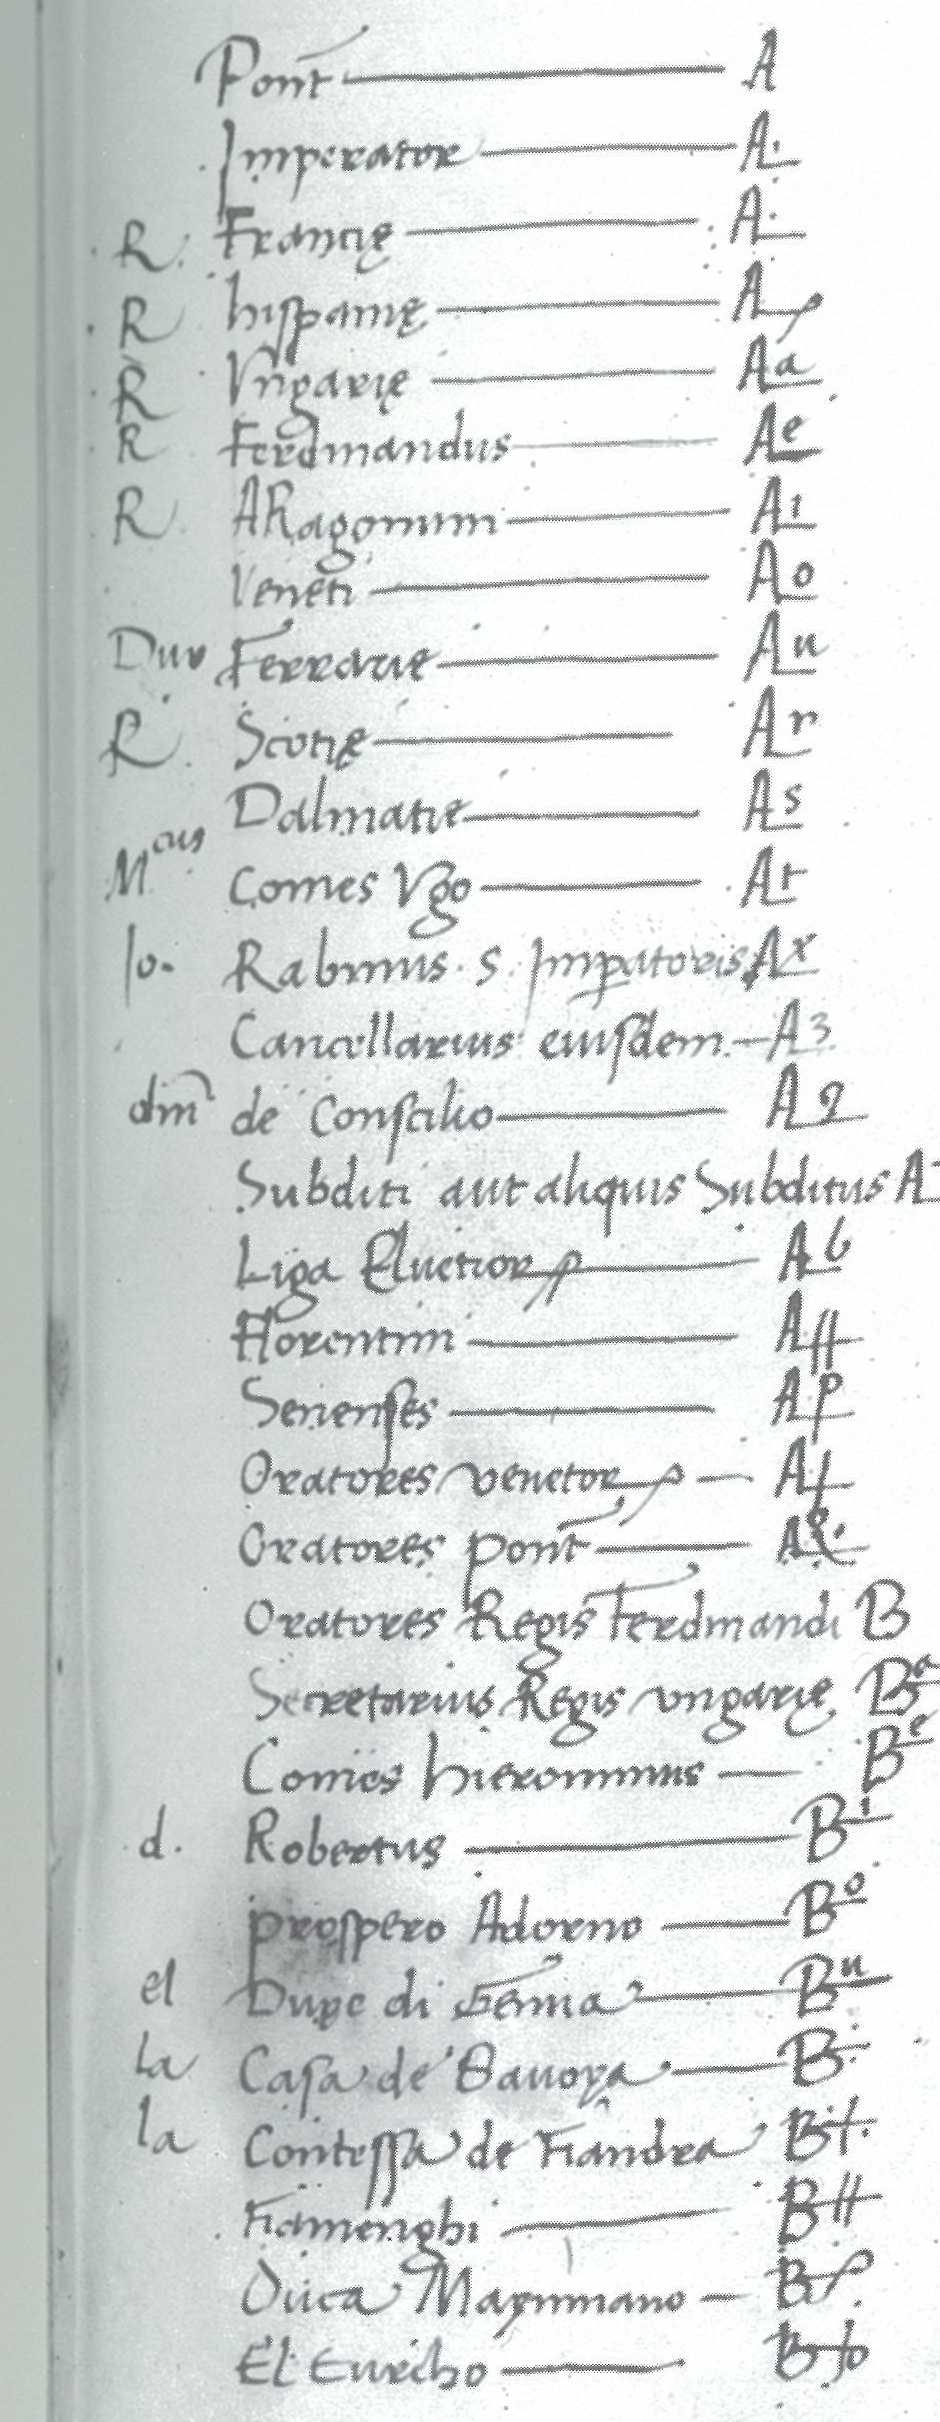 Pont A
Imperator A.
R. Francię A.
R hispanię A
R Vngarię Aa
R Ferdinandus Ae
R ARagonum Ai
Veneti Ao
Dux Ferrarię Au
R. Scotię Ar
Dalmatię As
Mcus Comes Vgo At
Jo. Rabinus. S. Impatoris Ax
Cancellarius eiusdem A3
dm de Consilio A9
Subditi aut aliquis Subditus A
Liga Eluetior Ab
Florentini A
Senenses Ap
Oratores venetor A
Oratores pont A
Oratores Regis Ferdinandi B
Secretarius Regis vngarię Ba
Comes hieronimus Be
d. Robertus Bi
prospero Adorno Bo
el Duxe di Genua Bu
La Casa de Sauoya B
la Contessa de Fiandra B
Fiamenghi B
Duca Maximiano B
El Turcho B